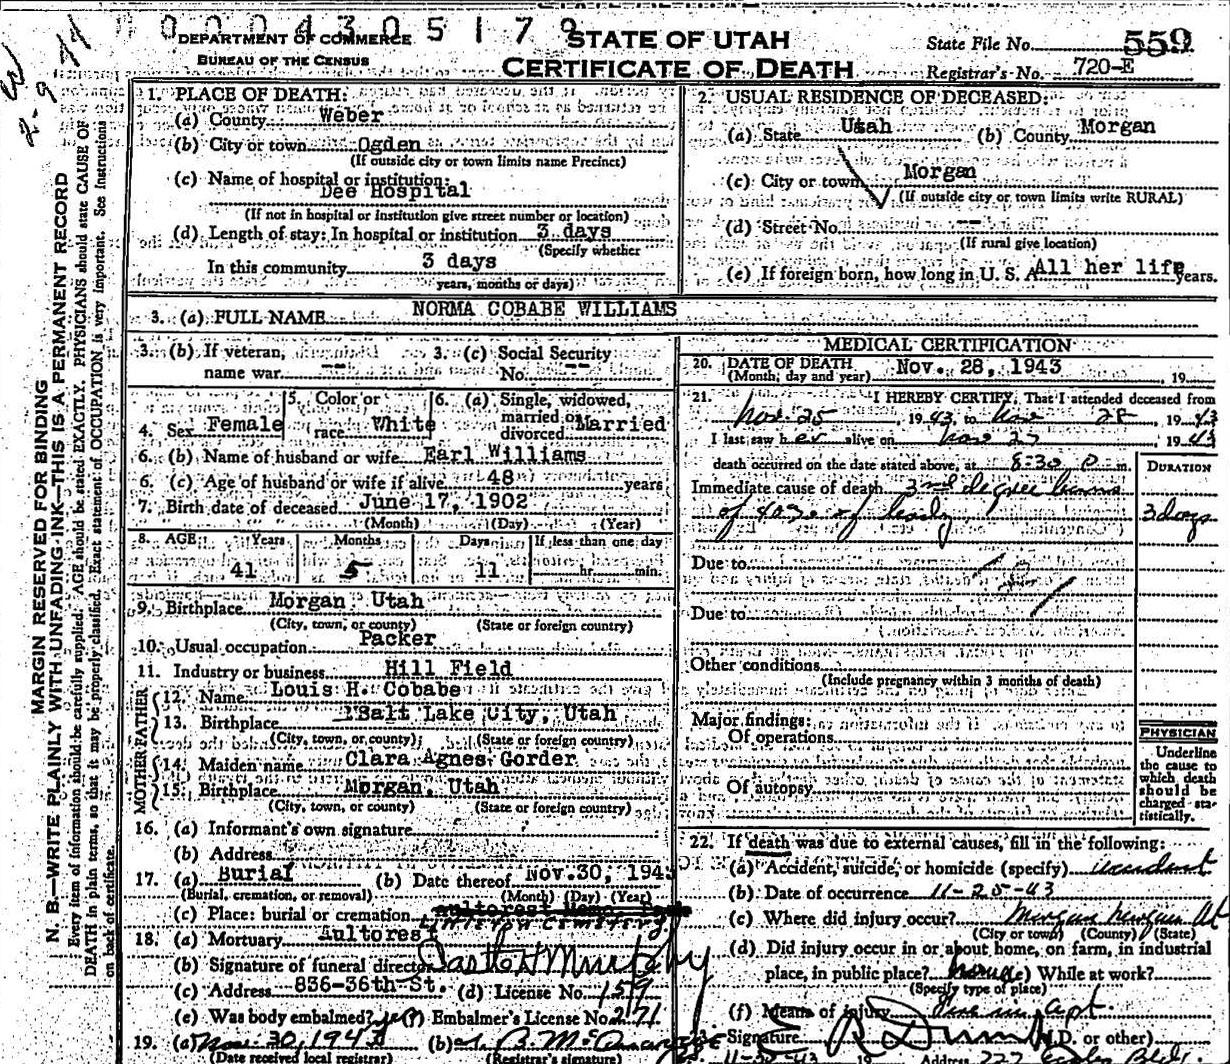 0004305179
DEPARTMENT OF COMMERCE
BUREAU OF THE CENSUS
STATE OF UTAH
CERTIFICATE OF DEATH
State File No. 559
Registrar's No. 720-E
MARGIN RESERVED FOR BINDING
N. B.—WRITE PLAINLY WITH UNFADING INK—THIS IS A PERMANENT RECORD
Every item of information should be carefully supplied. AGE should be stated EXACTLY. PHYSICIANS should state CAUSE OF
DEATH in plain terms, so that it may be properly classified. Exact statement of OCCUPATION is very important. See instructions
on back of certificate.
1. PLACE OF DEATH:
(a) County Weber
(b) City or town Ogden
(If outside city or town limits name Precinct)
(c) Name of hospital or institution:
Dee Hospital
(If not in hospital or institution give street number or location)
(d) Length of stay: In hospital or institution 3 days
(Specify whether
In this community 3 days
years, months or days)
2. USUAL RESIDENCE OF DECEASED:
(a) State Utah (b) County Morgan
(c) City or town Morgan
(If outside city or town limits write RURAL)
(d) Street No. --
(If rural give location)
(e) If foreign born, how long in U. S. A. All her life years.
3. (a) FULL NAME NORMA COBABE WILLIAMS
3. (b) If veteran, name war -- 3. (c) Social Security No. --
4. Sex Female 5. Color or race White 6. (a) Single, widowed, married or divorced Married
6. (b) Name of husband or wife Earl Williams
6. (c) Age of husband or wife if alive 48 years
7. Birth date of deceased June 17, 1902
(Month) (Day) (Year)
8. AGE Years Months Days If less than one day
41 5 11 hr. min.
9. Birthplace Morgan Utah
(City, town, or county) (State or foreign country)
10. Usual occupation Packer
11. Industry or business Hill Field
FATHER
12. Name Louis H. Cobabe
13. Birthplace Salt Lake City, Utah
(City, town, or county) (State or foreign country)
MOTHER
14. Maiden name Clara Agnes Gorder
15. Birthplace Morgan, Utah
(City, town, or county) (State or foreign country)
16. (a) Informant's own signature
(b) Address
17. (a) Burial (b) Date thereof Nov.30, 1943
(Burial, cremation, or removal) (Month) (Day) (Year)
(c) Place: burial or cremation
18. (a) Mortuary Aultorest
(b) Signature of funeral director
(c) Address 836-36th St. (d) License No. 159
(e) Was body embalmed? yes (f) Embalmer's License No. 271
19. (a) Nov. 30, 194 (b)
(Date received local registrar) (Registrar's signature)
MEDICAL CERTIFICATION
20. DATE OF DEATH Nov. 28, 1943
(Month, day and year) , 19
21. I HEREBY CERTIFY, That I attended deceased from
Nov. 25, 1943, to Nov 28, 1943
I last saw her alive on Nov 27 1943
death occurred on the date stated above, at 8:30 P. m.
DURATION
Immediate cause of death 3rd degree burns
of 40% of body
3 days
Due to
Due to
Other conditions
(Include pregnancy within 3 months of death)
Major findings:
Of operations
Of autopsy
PHYSICIAN
Underline
the cause to
which death
should be
charged sta-
tistically.
22. If death was due to external causes, fill in the following:
(a) Accident, suicide, or homicide (specify) accident
(b) Date of occurrence 11-25-43
(c) Where did injury occur? Morgan Morgan Ut
(City or town) (County) (State)
(d) Did injury occur in or about home, on farm, in industrial
place, in public place? home (e) While at work?
(Specify type of place)
(f) Means of injury Fire in apt.
23. Signature (M.D. or other)
11-30-43 19 Address